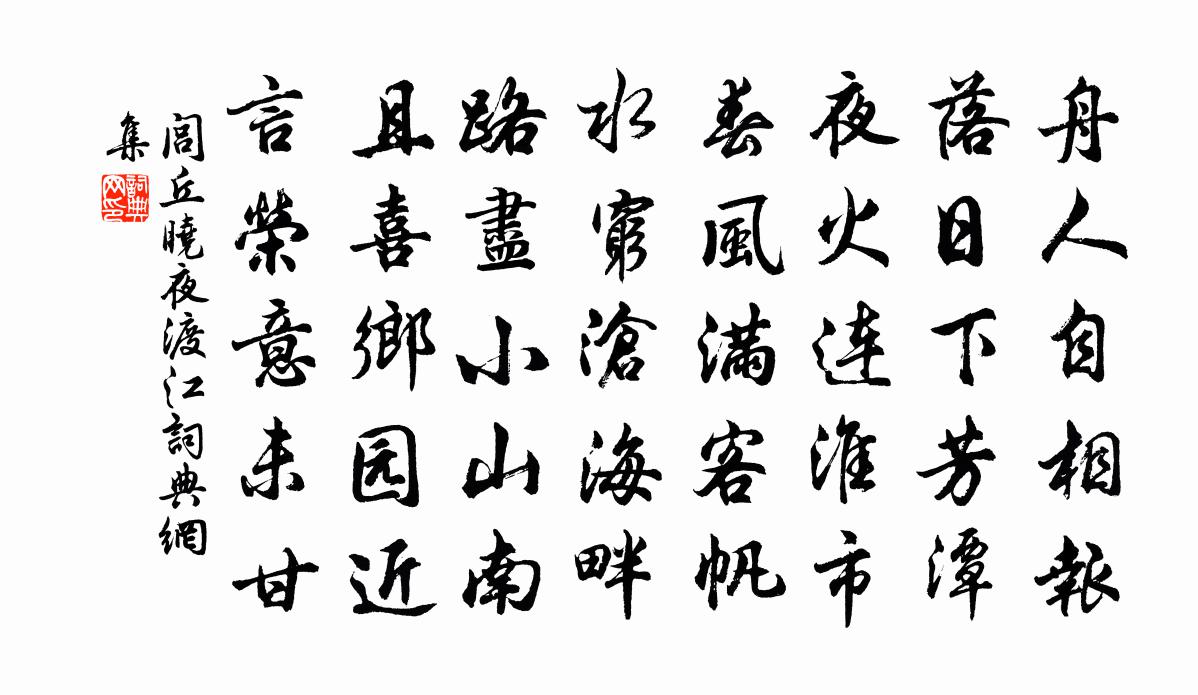 舟人自相報
落日下芳潭
夜火連淮市
春風滿客帆
水窮滄海畔
路盡小山南
且喜鄉园近
言榮意未甘
閭丘曉夜渡江詞典網
集
詞典
网印